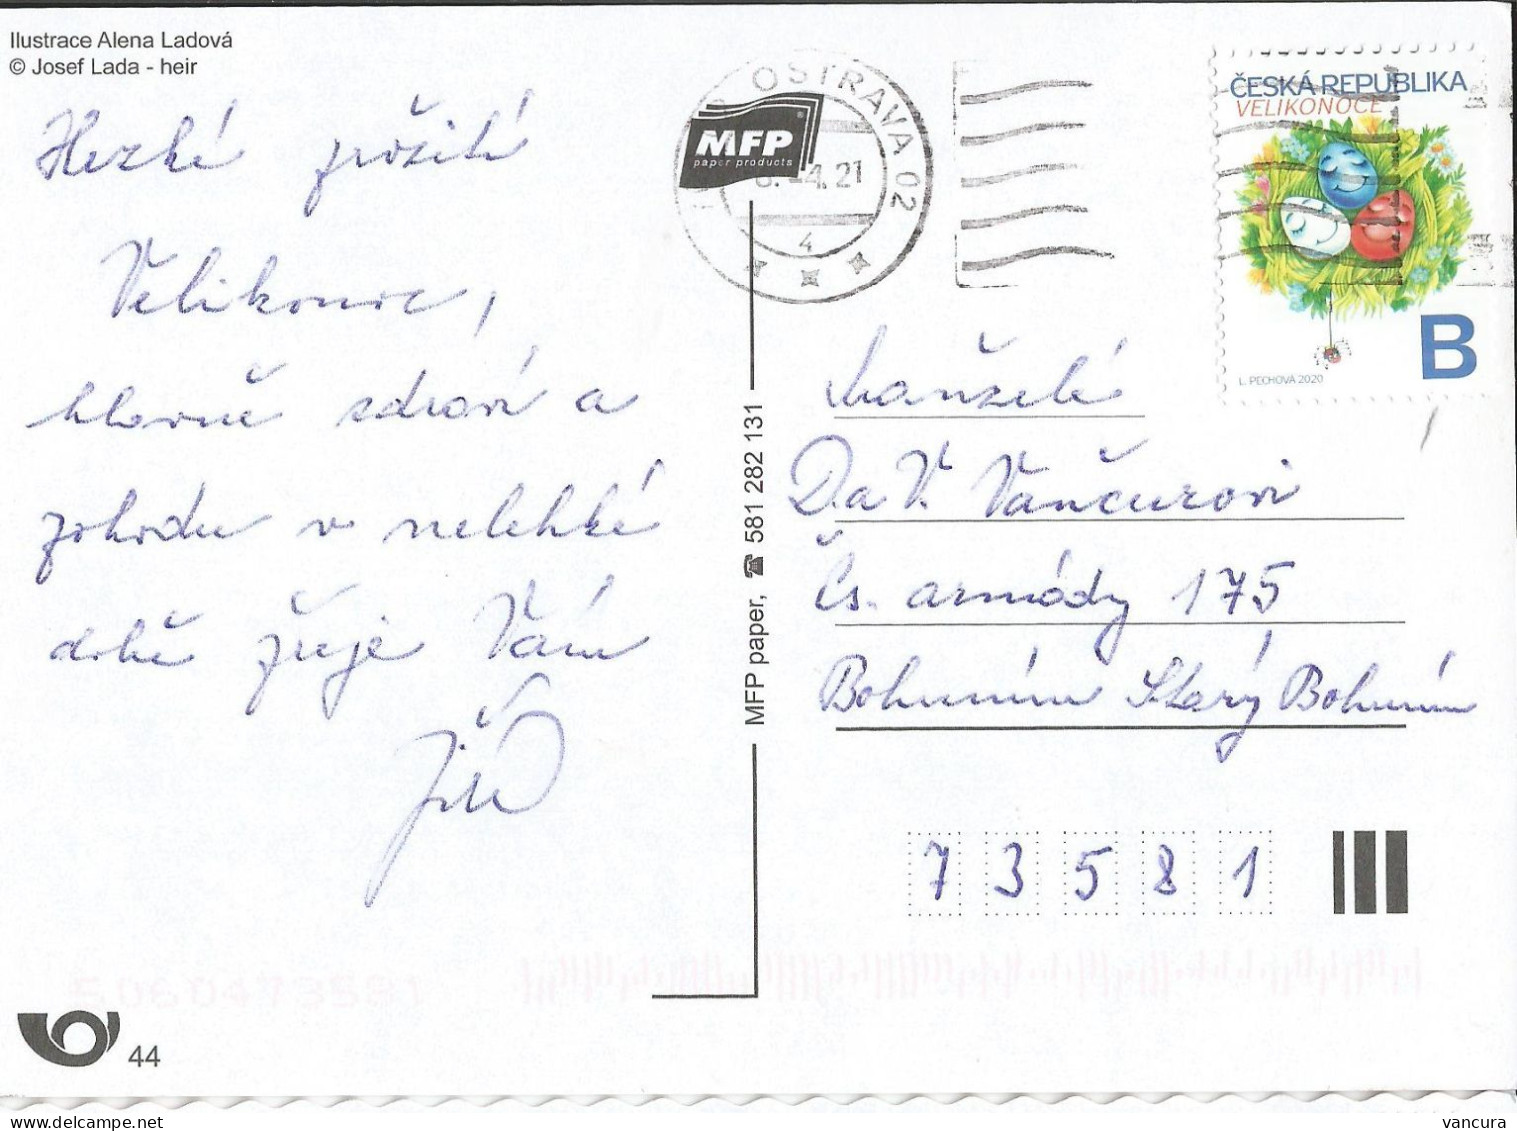 Ilustrace Alena Ladová
© Josef Lada - heir
Hezké prožití
Velikonoc,
hlavně zdraví a
pohodu v nelehké
době přeje Vám
MFP
paper products
OSTRAVA 02
4. 21
4
ČESKÁ REPUBLIKA
VELIKONOCE
L. PECHOVÁ 2020
B
MFP paper, ☎ 581 282 131
manželé
D. a V. Vančurovi
Čs. armády 175
Bohumín Starý Bohumín
7 3 5 8 1
5060473581
44
vancura